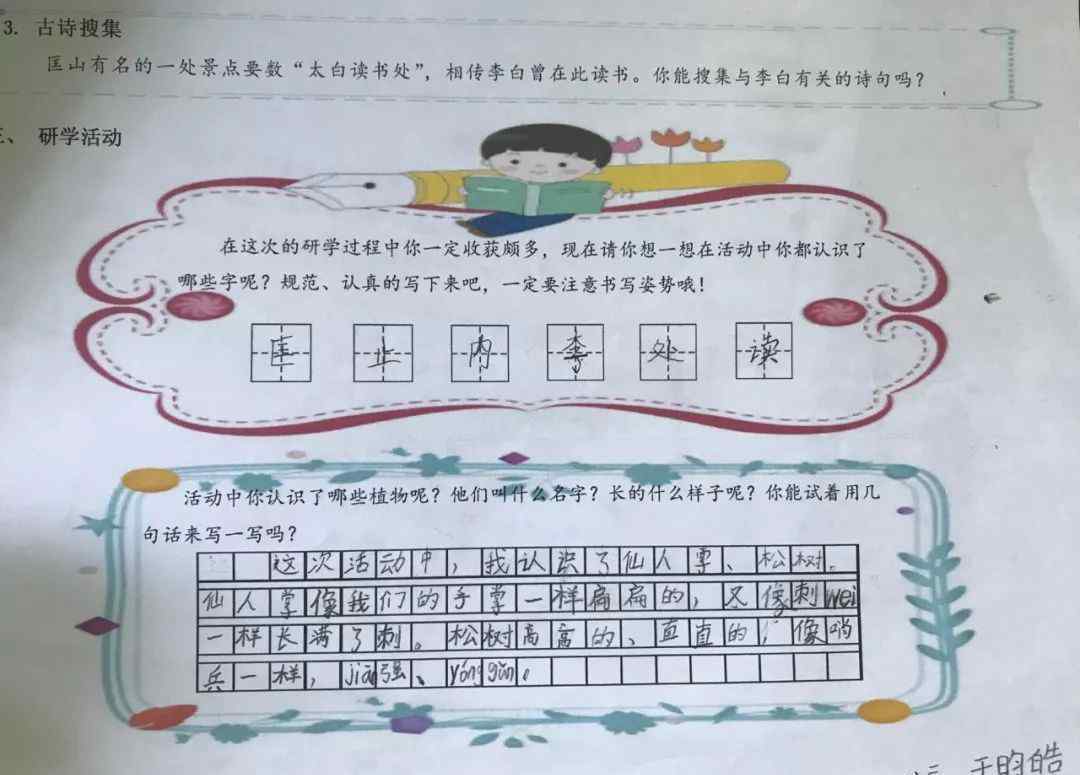 3. 古诗搜集
匡山有名的一处景点要数“太白读书处”，相传李白曾在此读书。你能搜集与李白有关的诗句吗？
、 研学活动
在这次的研学过程中你一定收获颇多，现在请你想一想在活动中你都认识了
哪些字呢？规范、认真的写下来吧，一定要注意书写姿势哦！
匡 止 内 李 处 读
活动中你认识了哪些植物呢？他们叫什么名字？长的什么样子呢？你能试着用几
句话来写一写吗？
这次活动中，我认识了仙人掌、松树。
仙人掌像我们的手掌一样扁扁的，又像刺wei
一样长满了刺。松树高高的、直直的，像哨
兵一样，jiān强、yónggǎn。
于昀皓